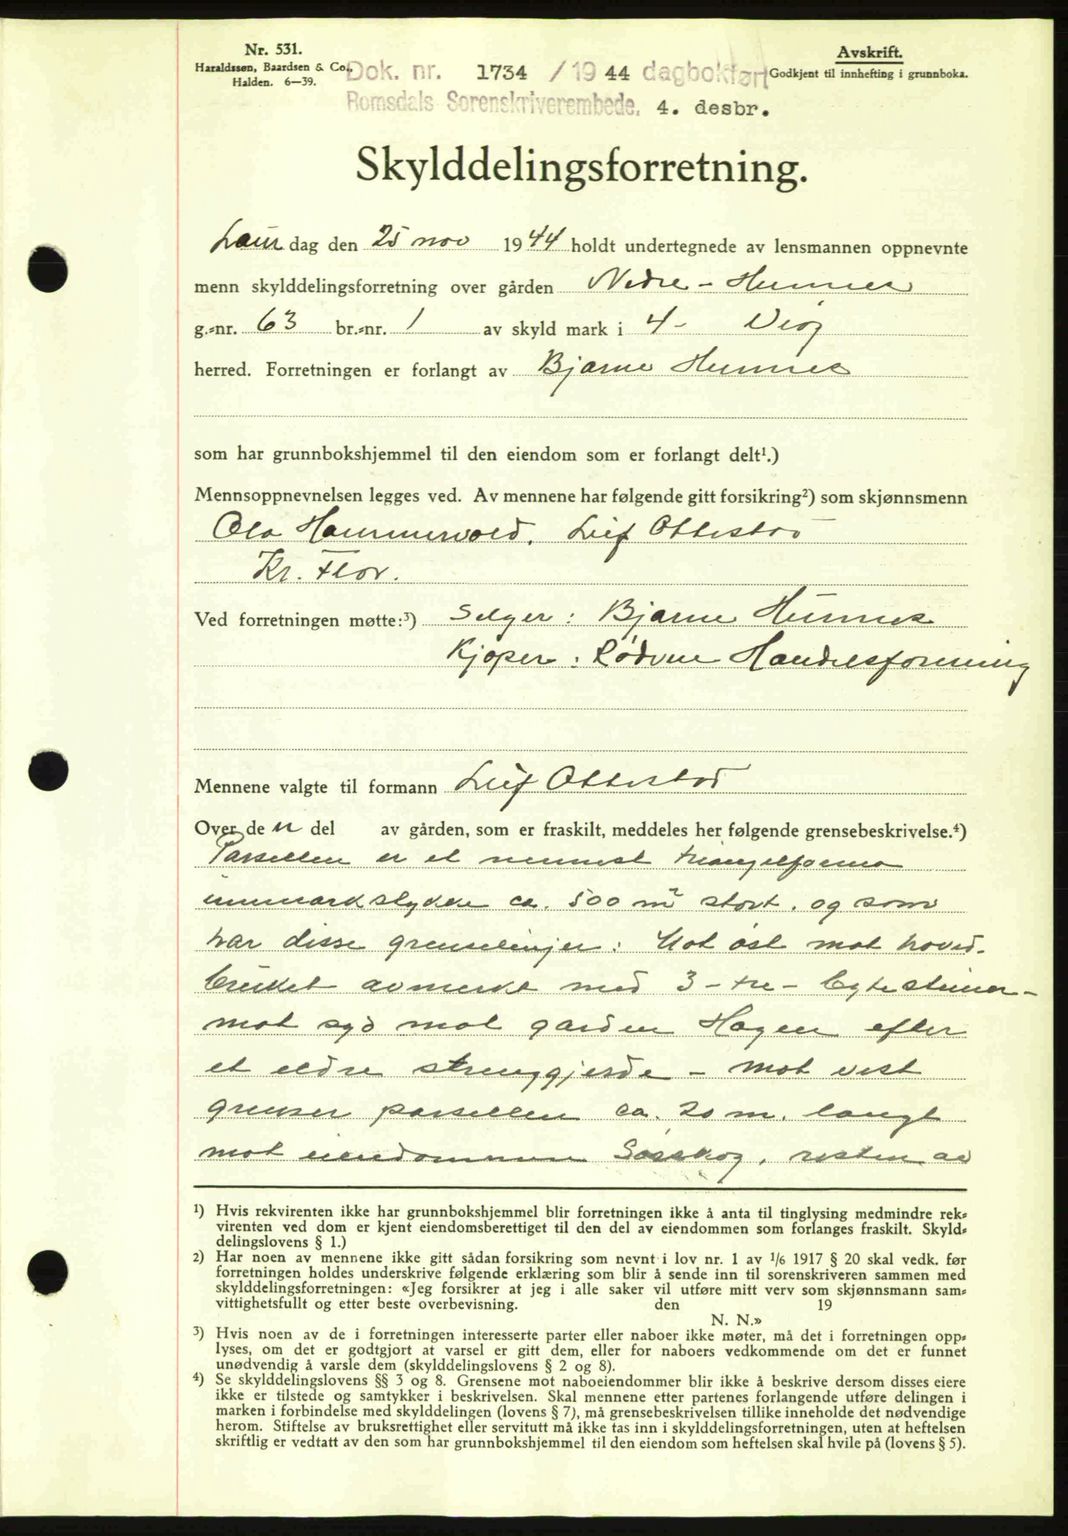 Nr. 531.
Haraldssøn, Baardsen & Co.,
Halden. 6—39.
Avskrift.
Godkjent til innhefting i grunnboka.
Dok. nr. 1734 / 19 44 dagbokført
Romsdals Sorenskriverembede. 4. desbr.
Skylddelingsforretning.
Laur dag den 25 nov 19 44 holdt undertegnede av lensmannen oppnevnte
menn skylddelingsforretning over gården Nedre - Hunnes
g.-nr. 63 br.-nr. 1 av skyld mark i 4 - Veøy
herred. Forretningen er forlangt av Bjarne Hunnes
som har grunnbokshjemmel til den eiendom som er forlangt delt¹.)
Mennsoppnevnelsen legges ved. Av mennene har følgende gitt forsikring²) som skjønnsmenn
Ola Hammervold, Leif Ottestad
Kr. Flov.
Ved forretningen møtte:³) Selger: Bjarne Hunnes
Kjøper: Rødven Handelsforening
Mennene valgte til formann Leif Ottestad
Over de n del av gården, som er fraskilt, meddeles her følgende grensebeskrivelse.⁴)
Parsellen er et nærmest triangelforma
innmarkstykke ca. 500 m² stort. og som
har disse grenselinjer: Mot øst mot hoved-
bruket avmerket med 3 - tre - bytesteiner -
mot syd mot garden Hagen efter
et eldre strenggjerde - mot vest
grenser parsellen ca. 20 m. langt
mot eiendommen Solskog, resten av
¹) Hvis rekvirenten ikke har grunnbokshjemmel blir forretningen ikke å anta til tinglysing medmindre rek-
virenten ved dom er kjent eiendomsberettiget til den del av eiendommen som forlanges fraskilt. Skyld-
delingslovens § 1.)
²) Har noen av mennene ikke gitt sådan forsikring som nevnt i lov nr. 1 av 1/6 1917 § 20 skal vedk. før
forretningen holdes underskrive følgende erklæring som blir å sende inn til sorenskriveren sammen med
skylddelingsforretningen: «Jeg forsikrer at jeg i alle saker vil utføre mitt verv som skjønnsmann sam-
vittighetsfullt og etter beste overbevisning. den 19
N. N.»
³) Hvis noen av de i forretningen interesserte parter eller naboer ikke møter, må det i forretningen opp-
lyses, om det er godtgjort at varsel er gitt dem, eller for naboers vedkommende om det er funnet
unødvendig å varsle dem (skylddelingslovens § 2 og 8).
⁴) Se skylddelingslovens §§ 3 og 8. Grensene mot naboeiendommer blir ikke å beskrive dersom disses eiere
ikke er tilstede og samtykker i beskrivelsen. Skal mennene etter partenes forlangende utføre delingen i
marken i forbindelse med skylddelingen (lovens § 7), må grensebeskrivelsen tillike inneholde det nødvendige
herom. Stiftelse av bruksrettighet eller servitutt må ikke tas inn i skylddelingsforretningen, uten at heftelsen
skriftlig er vedtatt av den som har grunnbokshjemmel til den eiendom som heftelsen skal hvile på (lovens § 5).